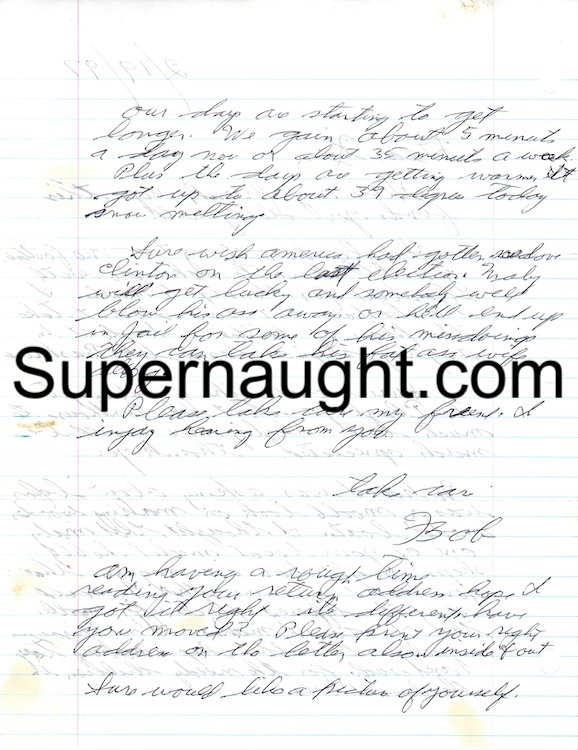 our days are starting to get
longer. We gain about 5 minuts
a day now or about 35 minuts a week.
Plus the days are getting warmer. It
got up to about 39 degree today
snow melting
Sure wish america had gotten rid of
Clinton on the last election. Maby
will get lucky and somebody will
blow his ass away or he'll end up
in jail for some of his misdoings
they can take his fat ass wife
Supernaught.com
Please take care my friend. I
injoy hearing from you.
take car
Bob
am having a rough time
reading your return address hope I
got it right its different have
you moved? Please print your right
address on the letter also inside & out
Sure would like a pictur of yourself.